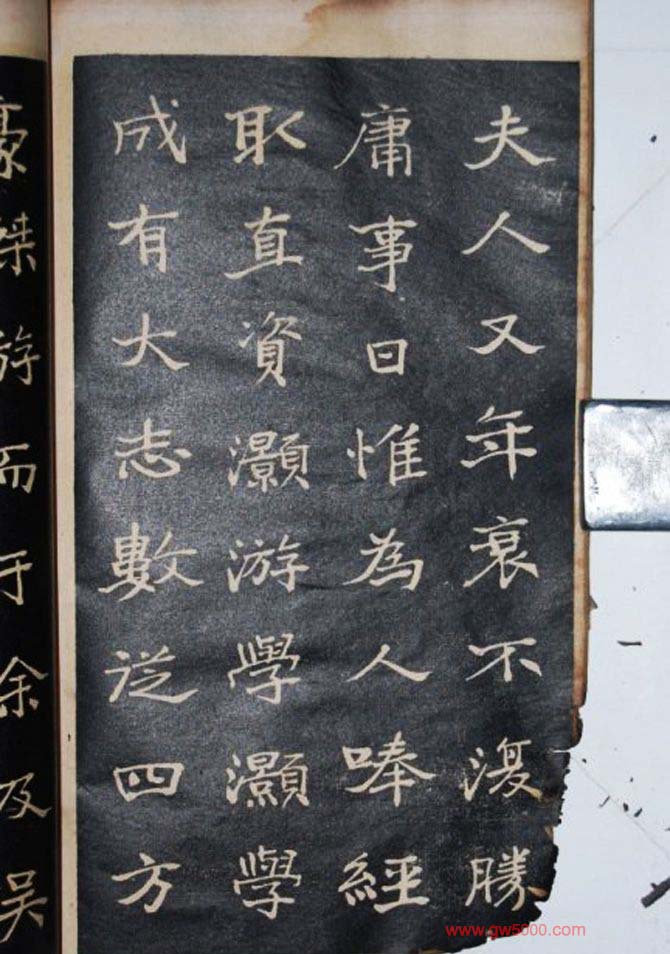 夫人又年衰不復勝
庸事日惟為人唪經
取直資灝游學灝學
成有大志數從四方
豪桀游而于余及吴
www.gw5000.com